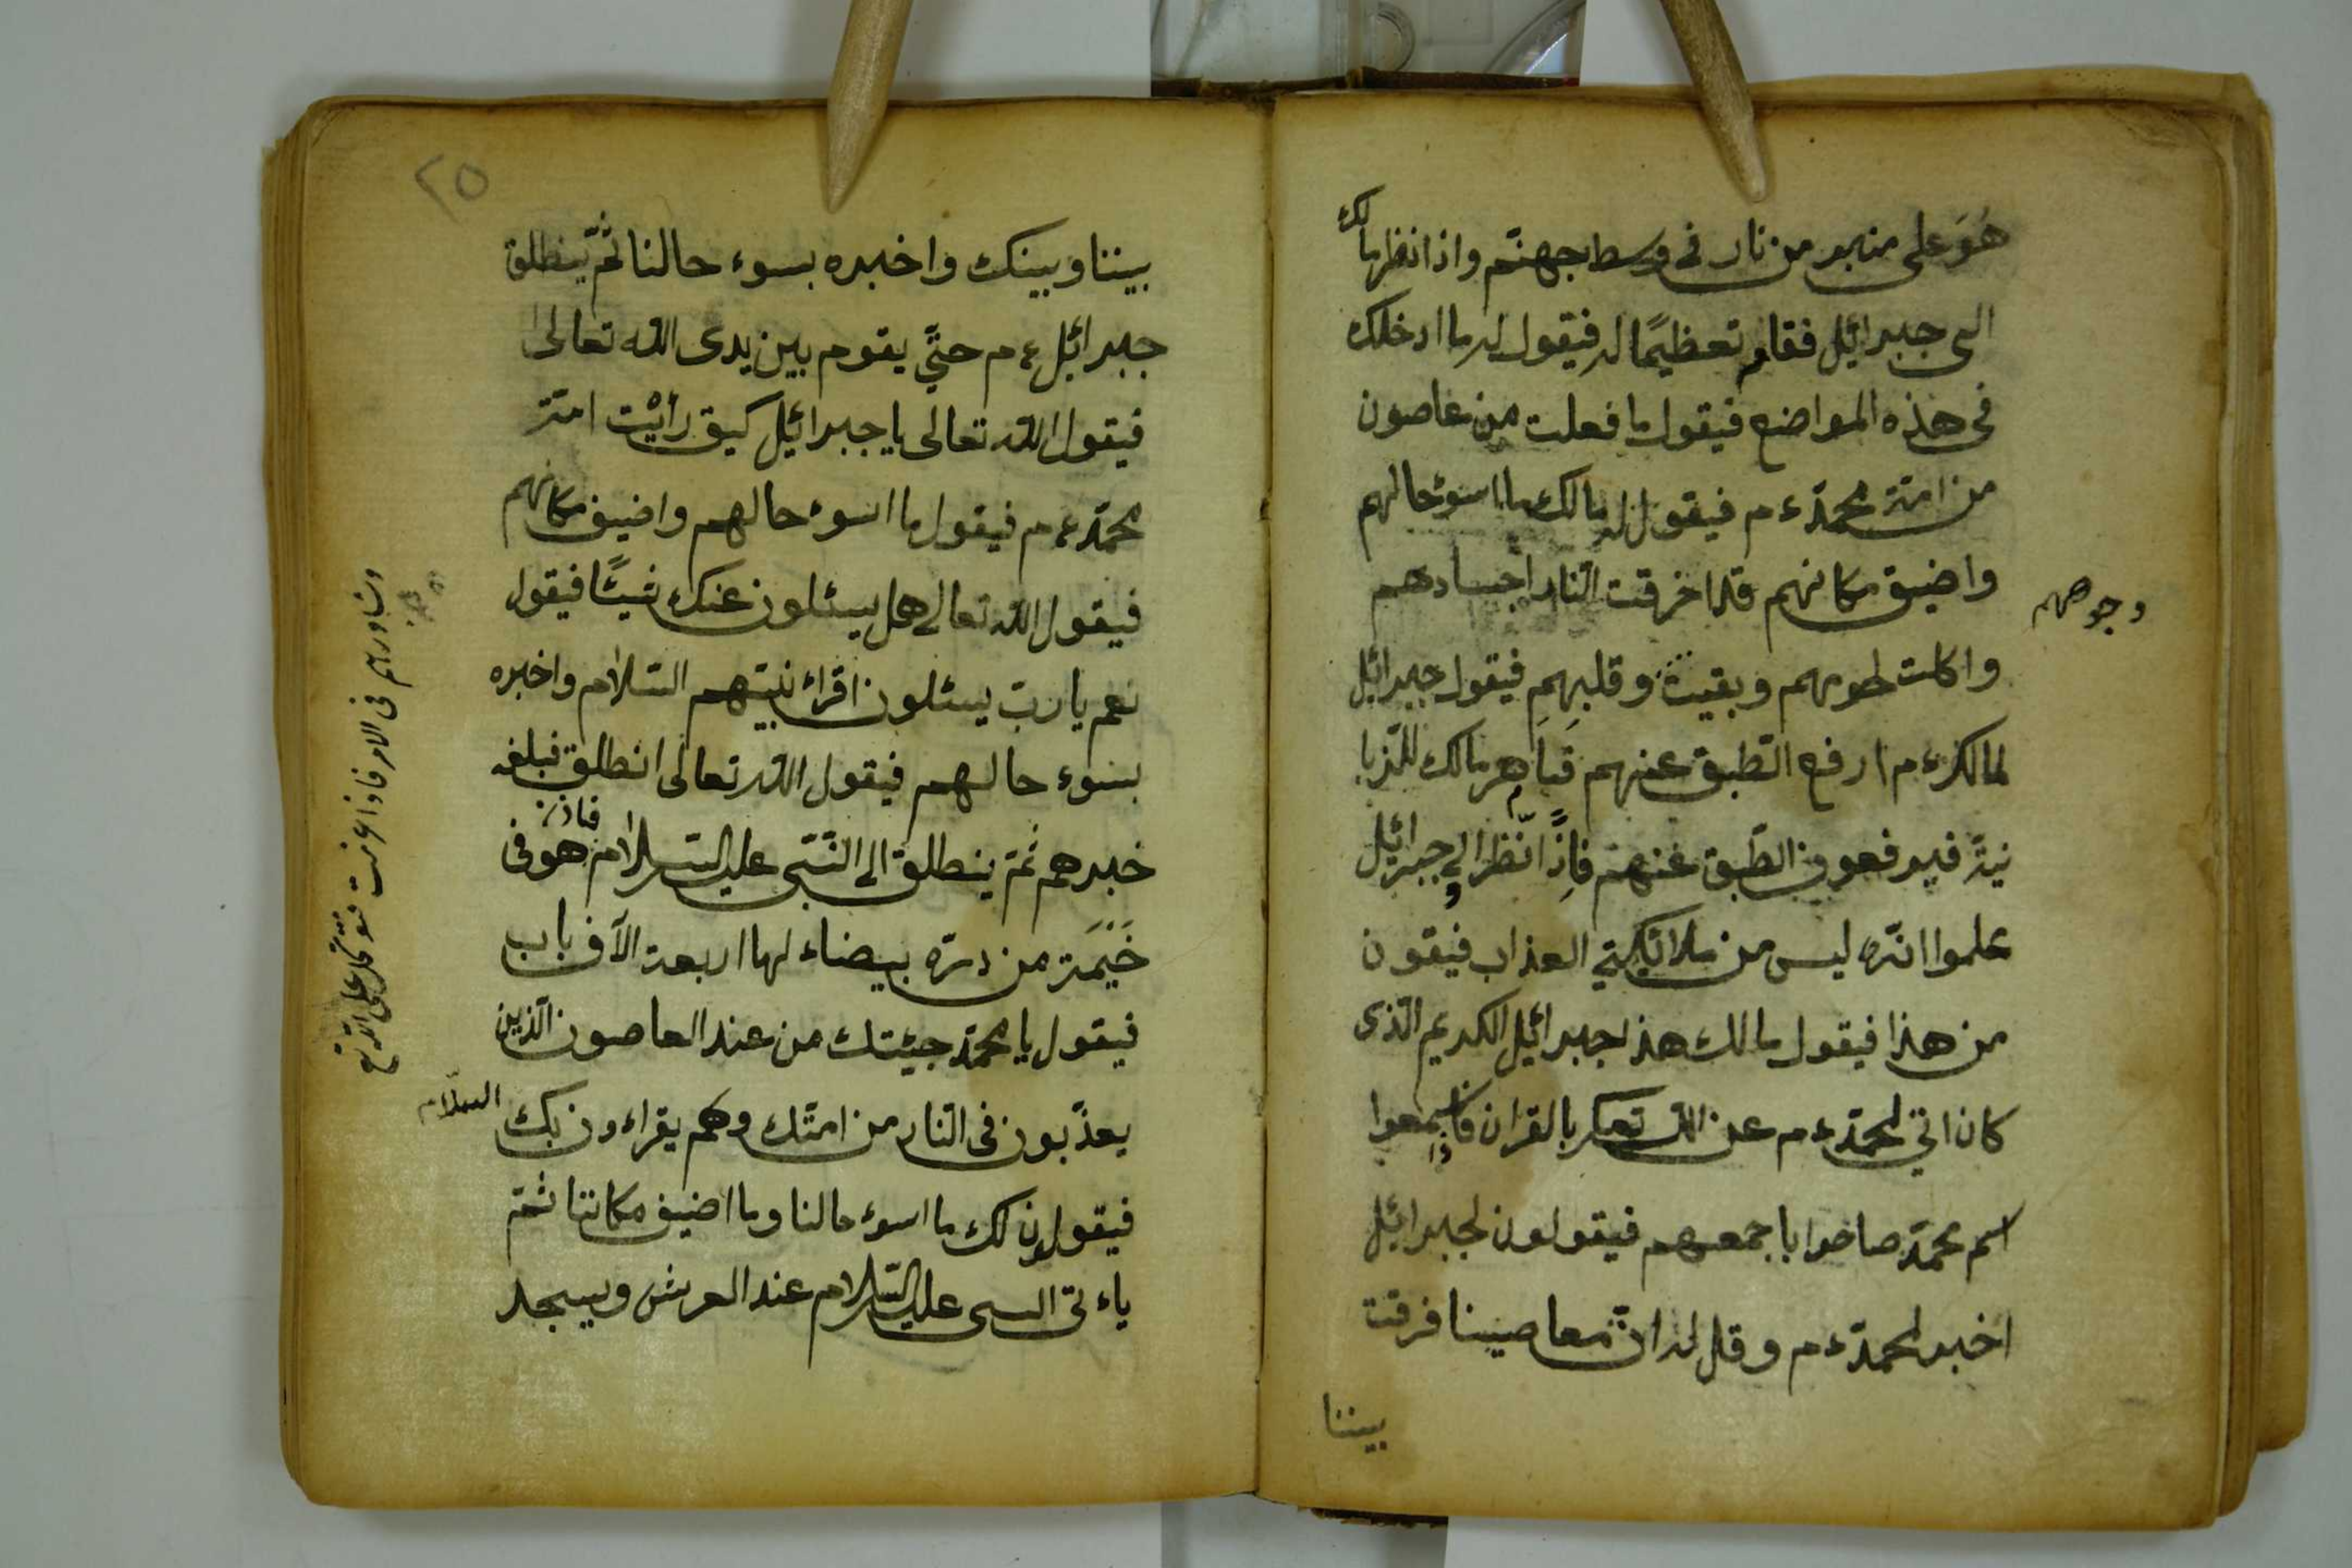 هُوَ على منبر من نار فى وسط جهنّم واذا نظر مالك
الى جبرائيل فقام تعظيمًا له فيقول له ما ادخلك
فى هذه المواضع فيقول ما فعلت من عاصون
من امّة محمّد ءم فيقول له مالك ما اسوء حالهم
واضيق مكانهم قد اخرقت النّار اجسادهم
وجوههم
واكلت لحومهم وبقيت وقلبهم فيقول جبرائيل
لمالك ءم ارفع الطّبق عنهم فيأمر مالك للزّبا
نية فيرفعون الطّبق عنهم فاِذًا انّظر الى جبرائيل
علموا انّه ليس من ملائكتي العذاب فيقون
من هذا فيقول مالك هذا جبرائيل الكريم الّذى
كان اتي لمحمّد ءم عن اللّه بالقران فاسمعوا
اسم محمّد صاخوا باجمعهم فيقولون لجبرائيل
اخبر لمحمّد ءم وقل له انّ معاصينا فرقت
بيننا
٢٥
بيننا وبينك واخبره بسوء حالنا ثمّ ينطلق
جبرائيل ءم حتّي يقوم بين يدى اللّه تعالى
فيقول اللّه تعالى يا جبرائيل كيق رأيْت امّة
محمّد ءم فيقول ما اسوء حالهم واضيق مكانهم
فيقول اللّه تعالى هل يسئلون عنك شيئًا فيقول
نعم يا ربّ يسئلون اقراء نبيّهم السّلام واخبره
بسوء حالهم فيقول اللّه تعالى انطلق فبلغه
خبرهم ثمّ ينطلق الى النّبّى عليه السّلام هو فى
خَيْمَة من درّه بيضاء لها اربعة الآف باب
فيقول يا محمّد جيئتك من عند العاصون الّذين
يعذّبون فى النّار من امّتك وهم يقراءون بك السّلام
فيقولون لك ما اسوء حالنا وما اضيق مكاننا ثمّ
ياءتى النبى عليه السّلام عند العرش ويسجد
وشاورهم فى الامر فاذا عزمت فتوكل على اللّه